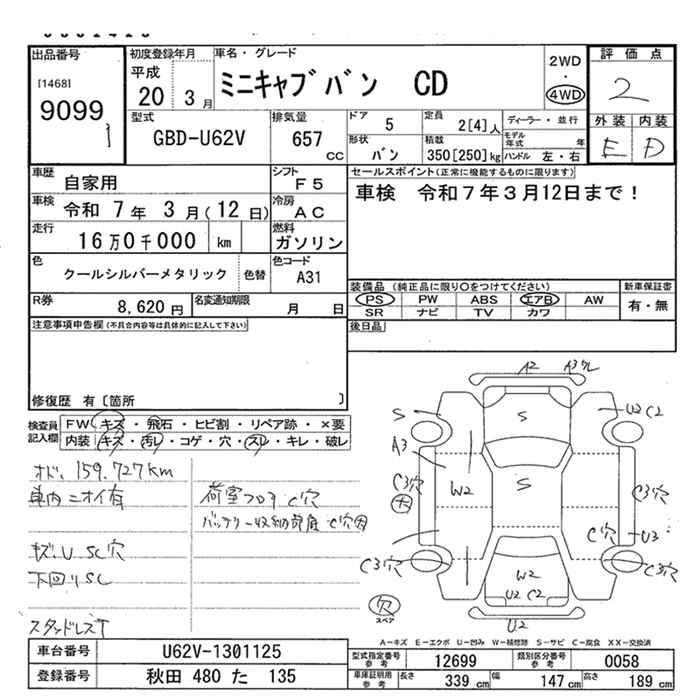 出品番号 初度登録年月 車名・グレード 評価点
[1468] 平成 ミニキャブバン CD 2WD・4WD 2
9099 20 3月
1 型式 排気量 ドア 定員 ディーラー・並行 外装 内装
GBD-U62V 657 CC 5 2[4]人 モデル年式 年 E D
形状 積載 ハンドル 左・右
バン 350[250]kg
車歴 自家用 シフト F5 セールスポイント(正常に機能するものに限ります)
車検 令和 7年 3月(12日) 冷房 AC 車検 令和7年3月12日まで!
走行 16万0千000 km 燃料 ガソリン
色 クールシルバーメタリック 色替 色コード A31
装備品 (純正品に限り〇をつけてください) 新車保証書
R券 8,620円 名変通知期限 月 日 PS PW ABS エアB AW 有・無
SR ナビ TV カワ
注意事項申告欄(不具合内容等は具体的に記入して下さい) 後日品
修復歴 有〔箇所 〕
検査員記入欄 FW キズ・飛石・ヒビ割・リペア跡・×要
内装 キズ・汚レ・コゲ・穴・スレ・キレ・破レ
オド、159.727km
車内ニオイ有
荷室フロア C穴
バッテリー収納部底 C穴大
キズ U SC穴
下回りSC
スタッドレスT
A2
S S U2 C2
A3
C3穴 大 W2 S C3穴
C穴 U3
C3穴 W2 C3穴
U2 C2
欠 スペア U2
A-キズ E-エクボ U-凹み W-補修跡 S-サビ C-腐食 XX-交換済
車台番号 U62V-1301125 型式指定番号 参考 12699 類別区分番号 参考 0058
登録番号 秋田 480 た 135 車庫証明用 参考 長さ 339cm 幅 147cm 高さ 189cm